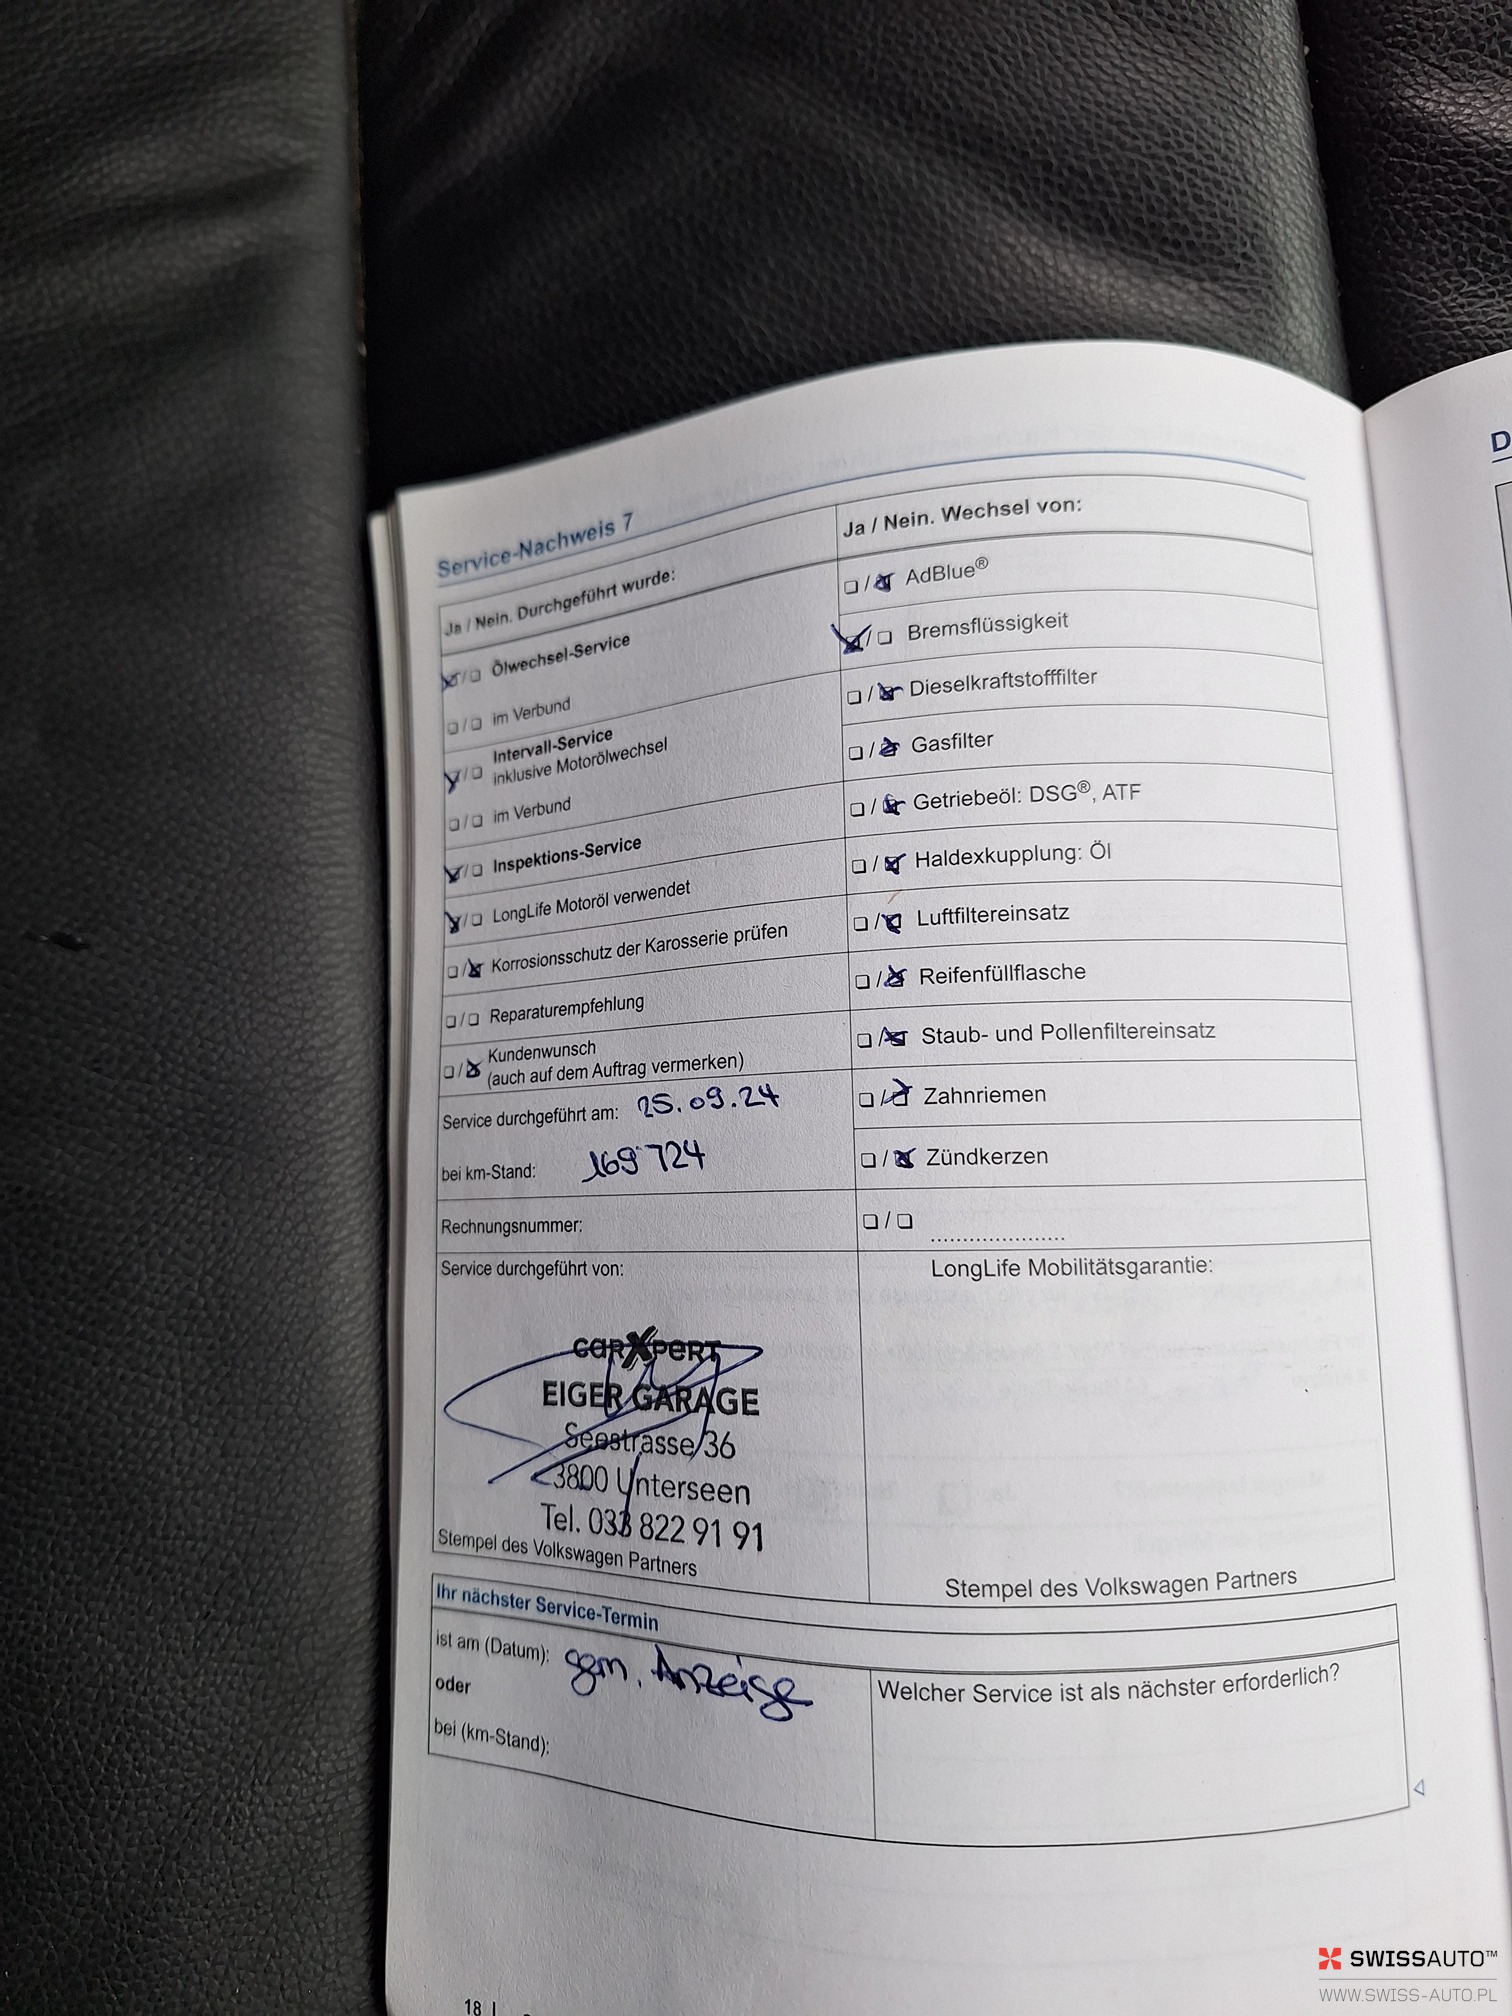 Service-Nachweis 7
Ja / Nein. Durchgeführt wurde:
Ölwechsel-Service
im Verbund
Intervall-Service
inklusive Motorölwechsel
im Verbund
Inspektions-Service
LongLife Motoröl verwendet
Korrosionsschutz der Karosserie prüfen
Reparaturempfehlung
Kundenwunsch
(auch auf dem Auftrag vermerken)
Service durchgeführt am: 25.09.24
bei km-Stand: 169'724
Rechnungsnummer:
Service durchgeführt von:
carXpert
EIGER GARAGE
Seestrasse 36
3800 Unterseen
Tel. 033 822 91 91
Stempel des Volkswagen Partners
Ja / Nein. Wechsel von:
AdBlue®
Bremsflüssigkeit
Dieselkraftstofffilter
Gasfilter
Getriebeöl: DSG®, ATF
Haldexkupplung: Öl
Luftfiltereinsatz
Reifenfüllflasche
Staub- und Pollenfiltereinsatz
Zahnriemen
Zündkerzen
......................
LongLife Mobilitätsgarantie:
Stempel des Volkswagen Partners
Ihr nächster Service-Termin
ist am (Datum): gem. Anzeige
oder
bei (km-Stand):
Welcher Service ist als nächster erforderlich?
18
D
SWISSAUTO™
WWW.SWISS-AUTO.PL